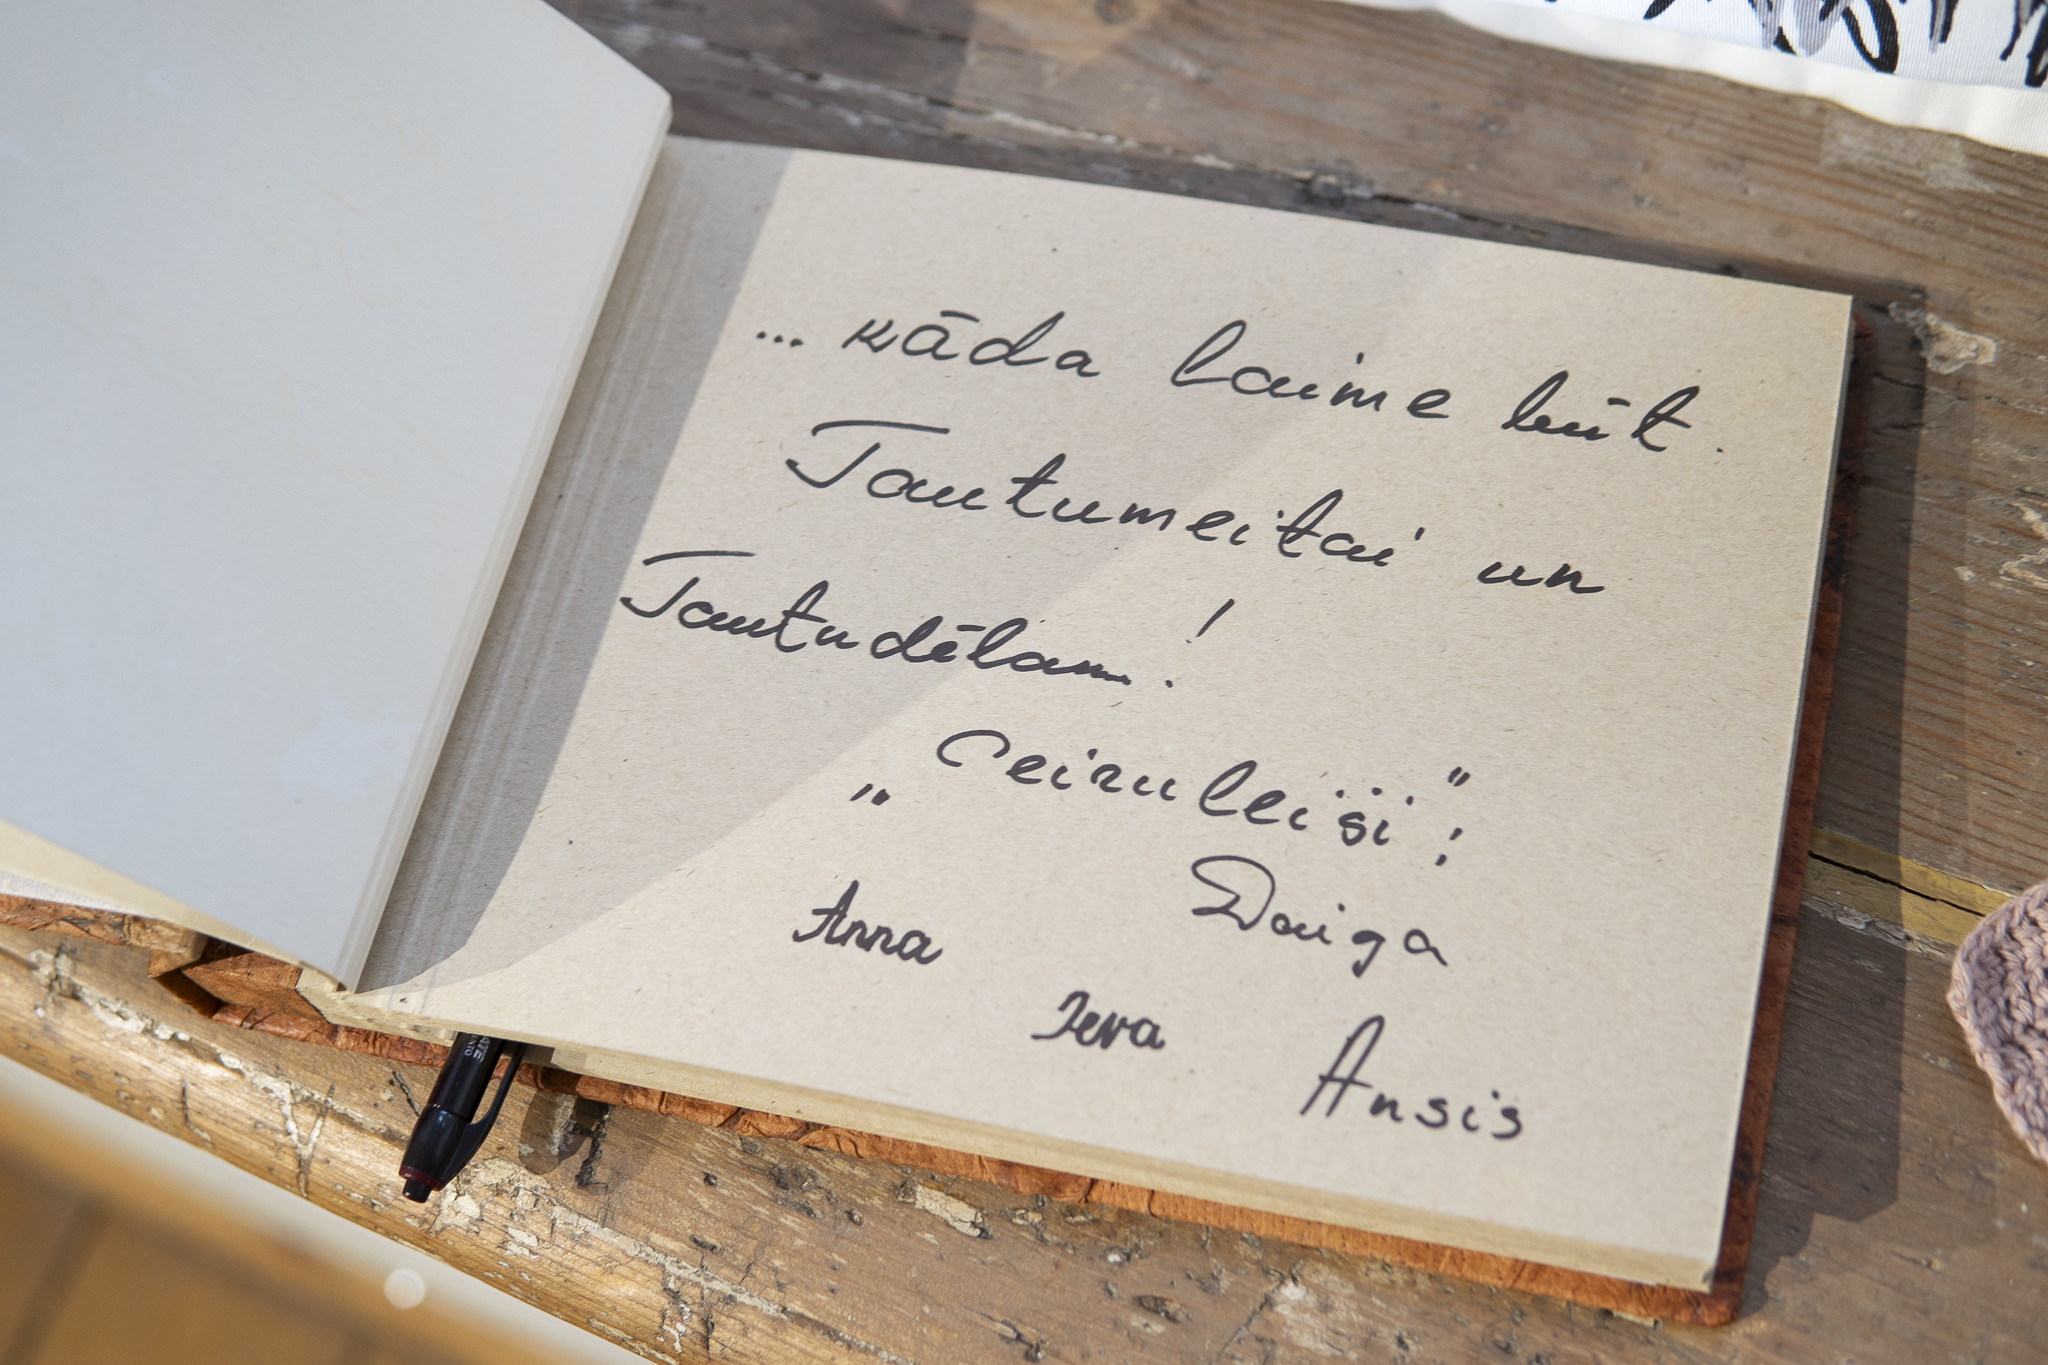 ... kāda laime būt
Tautumeitai un
Tautudēlam!
„Ceiruleiši":
Daiga
Anna
Ieva
Ansis